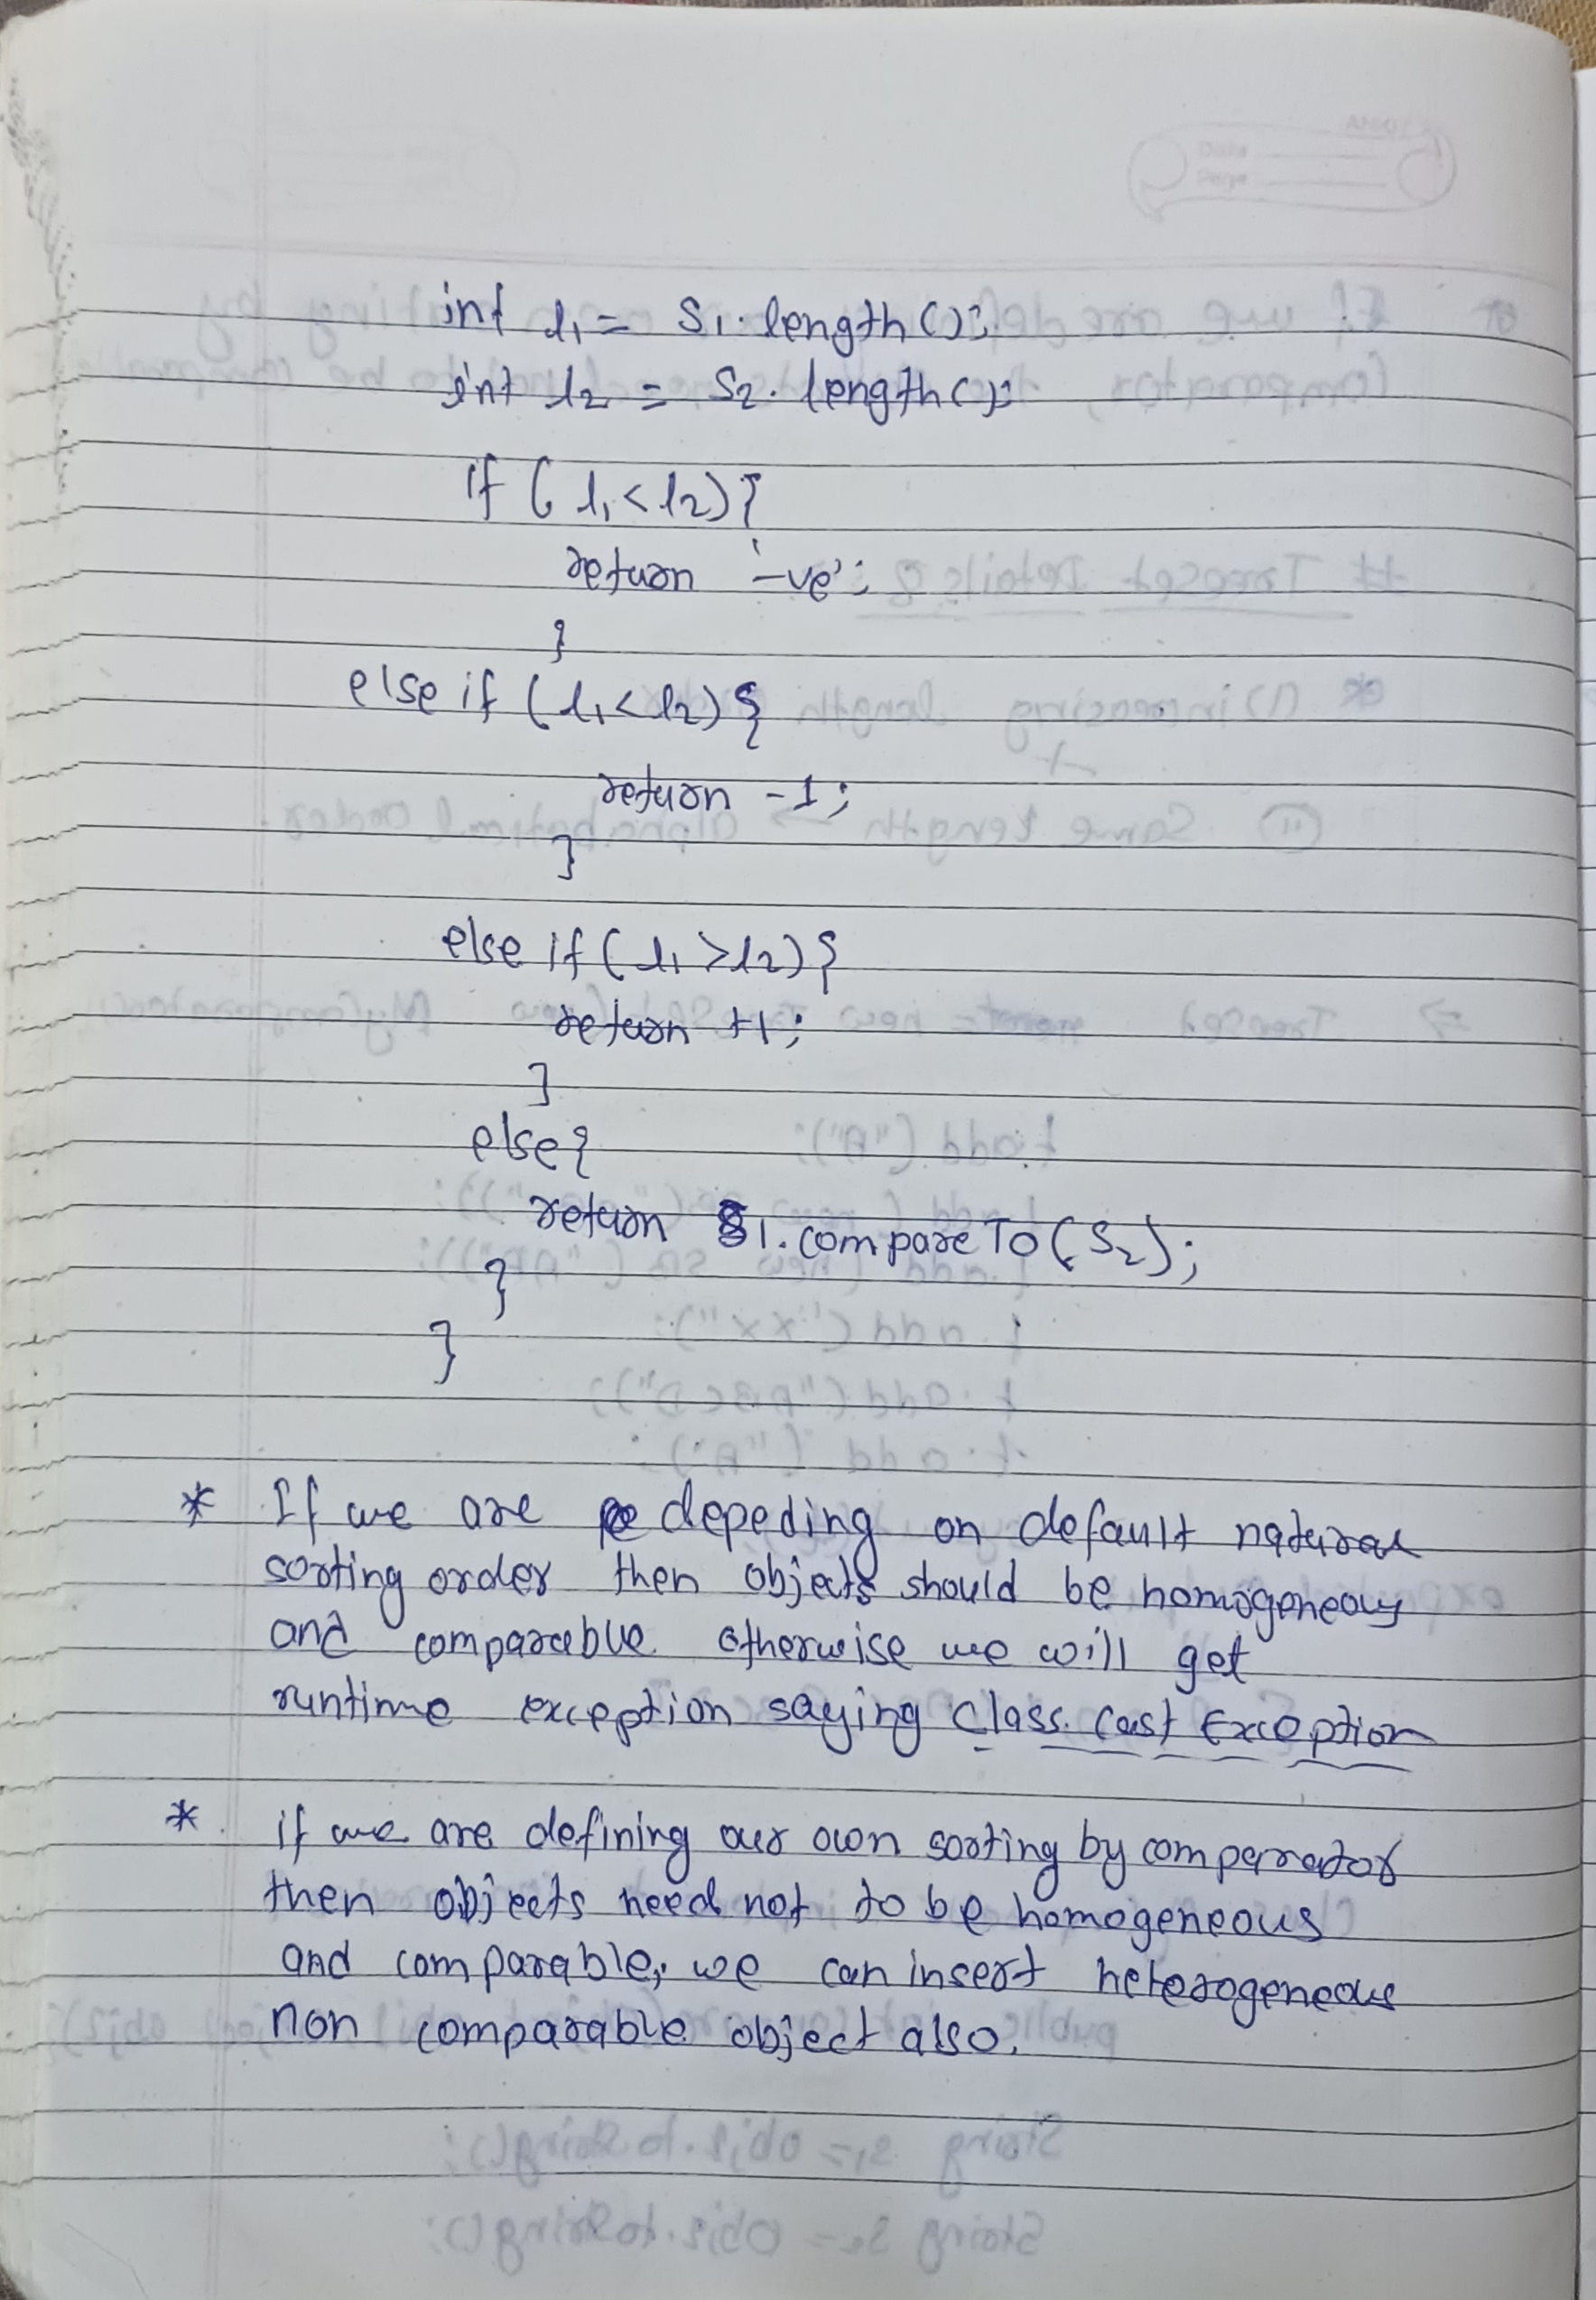 int l1 = S1.length();
int l2 = S2.length();
if (l1<l2){
return '-ve';
}
else if (l1<l2){
return -1;
}
else if (l1>l2){
return +1;
}
else{
return S1.compareTo(S2);
}
}
* If we are depeding on default natural
sorting order then objects should be homogeneous
and comparable otherwise we will get
runtime exception saying Class Cast Exception
* if we are defining our own sorting by comparator
then objects need not to be homogeneous
and comparable, we can insert heterogeneous
non comparable object also.